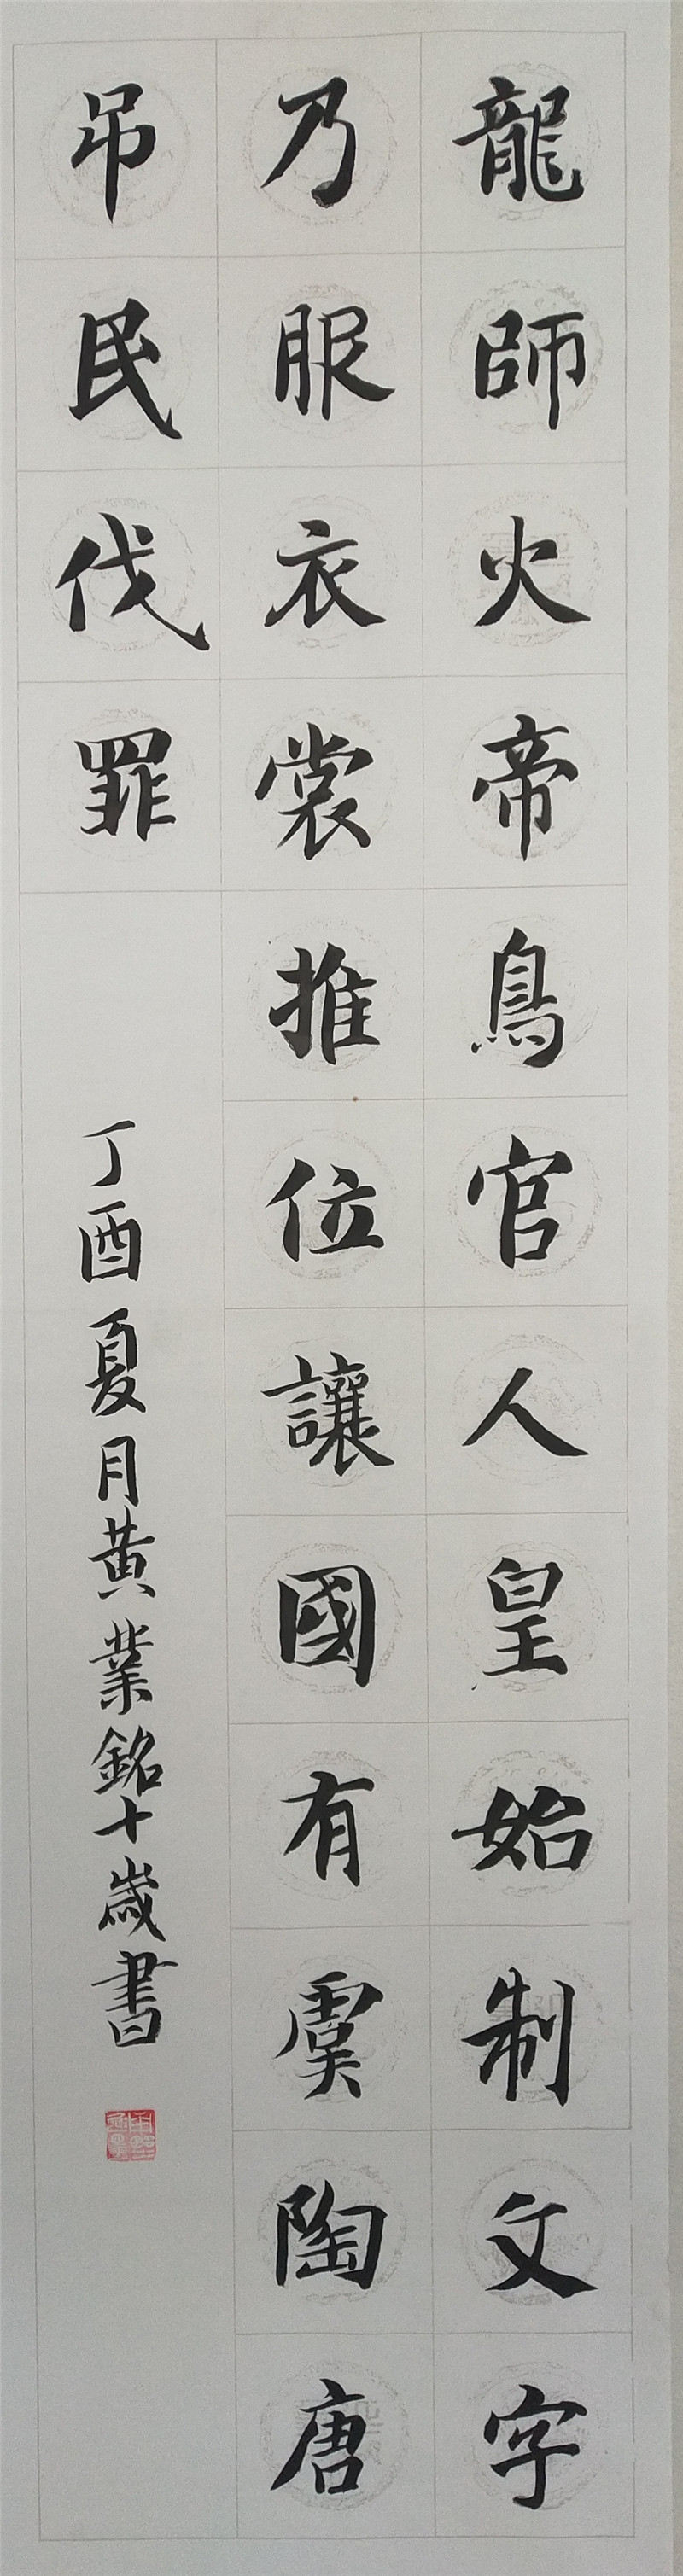 龍師火帝鳥官人皇始制文字
乃服衣裳推位讓國有虞陶唐
吊民伐罪
丁酉夏月黄業銘十歲書